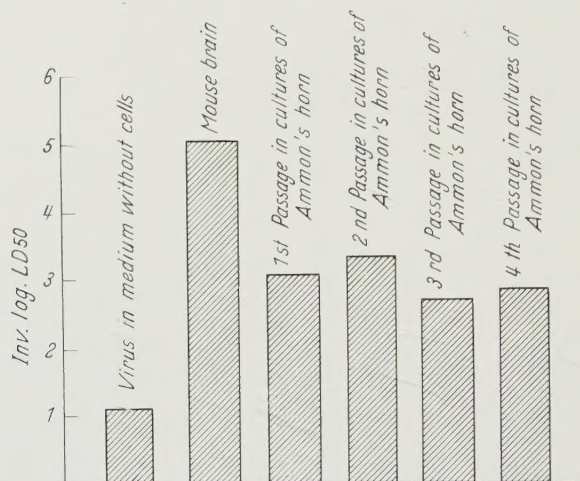 Inv. log. LD50
6
5
4
3
2
1
Virus in medium without cells
Mouse brain
1st Passage in cultures of
Ammon's horn
2nd Passage in cultures of
Ammon's horn
3rd Passage in cultures of
Ammon's horn
4th Passage in cultures of
Ammon's horn